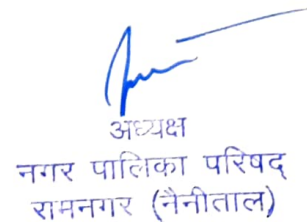 अध्यक्ष
नगर पालिका परिषद्
रामनगर (नैनीताल)